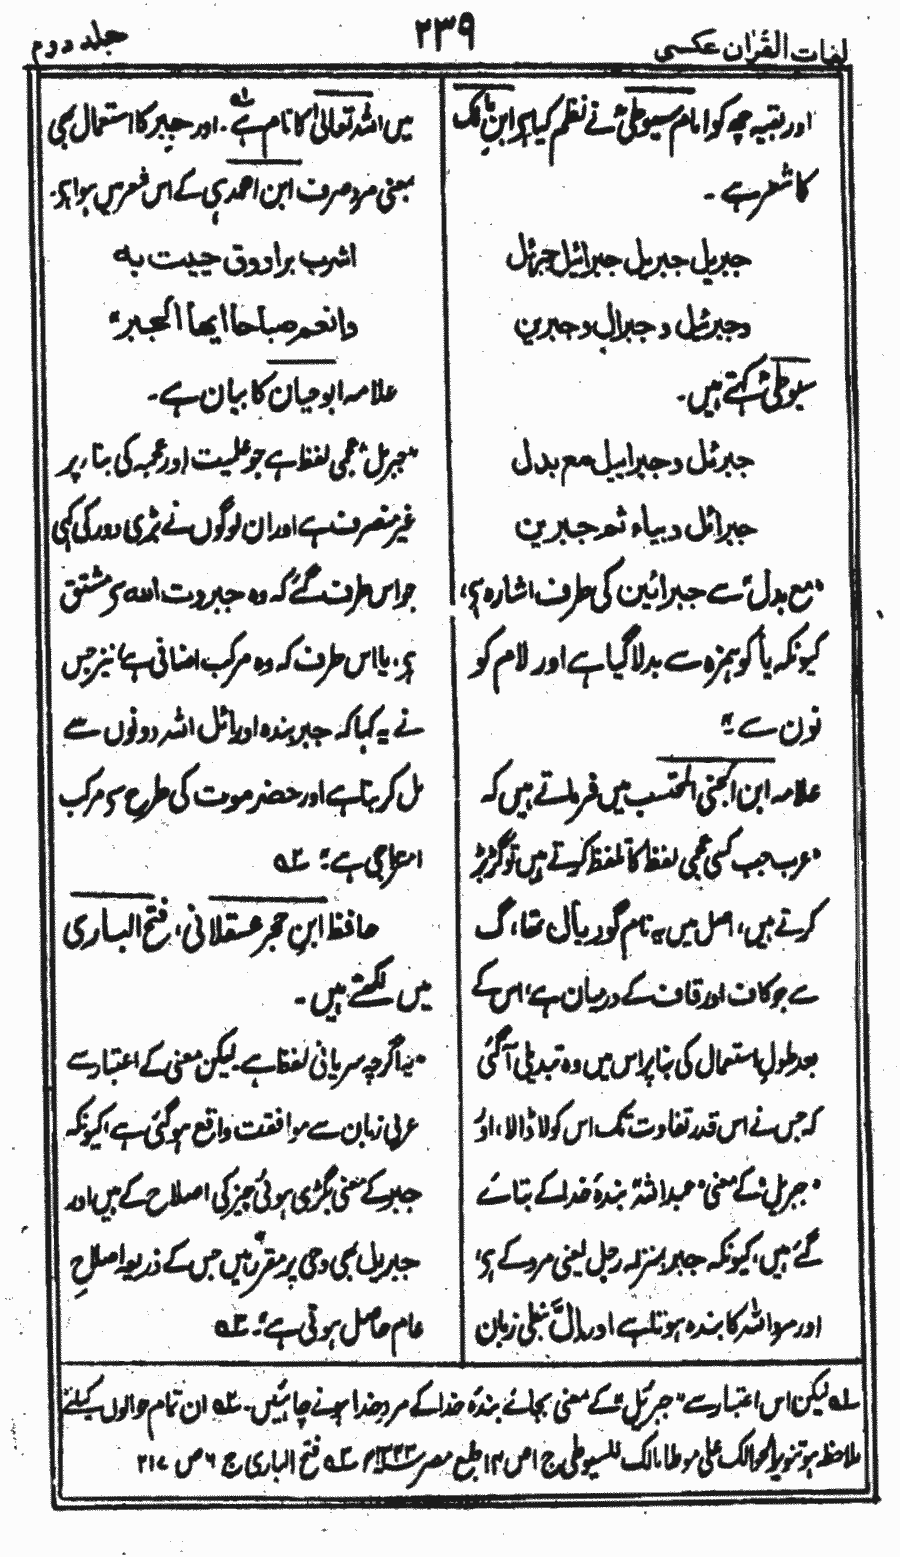 لغات القرآن عکسی
۲۳۹
جلد دوم
اور بقیہ چھ کو امام سیوطیؒ نے نظم کیا ہے ابن مالک
کا شعر ہے۔
جبریل جبریل جبرائیل جبرئل
وجبرئیل و جبرال وجبرین
سیوطیؒ کہتے ہیں۔
جبرئل وجبراییل مع بدل
جبرائل وبیاء ثم جبرین
"مع بدل" سے جبرائین کی طرف اشارہ ہے،
کیونکہ یاء کو ہمزہ سے بدلا گیا ہے اور لام کو
نون سے۔"
علامہ ابن الجنی المحتسب میں فرماتے ہیں کہ
"عرب جب کسی عجمی لفظ کا تلفظ کرتے ہیں تو گڑبڑ
کرتے ہیں، اصل میں یہ نام گوریال تھا، گ
سے جو کاف اور قاف کے درمیان ہے، اس کے
بعد طولِ استعمال کی بنا پر اس میں وہ تبدیلی آ گئی
کہ جس نے اس قدر تفاوت تک اس کو لا ڈالا، اور
"جبریل" کے معنی "عبد اللہ" بندۂ خدا کے بتائے
گئے ہیں، کیونکہ جبر بمنزلہ رجل یعنی مرد کے ہے،
اور مرد اللہ کا بندہ ہوتا ہے اور اِلّ نبطی زبان
میں اللہ تعالیٰ کا نام ہے۔ اور جبر کا استعمال بھی
بمعنی مرد صرف ابن احمد ہی کے اس شعر میں ہوا ہے۔
اشرب براووق حییت به
وانعم صباحا ایها الجبر"
علامہ ابو حیان کا بیان ہے۔
"جبریل" عجمی لفظ ہے جو علمیت اور عجمہ کی بناء پر
غیر منصرف ہے اور ان لوگوں نے بڑی دور کی کہی
جو اس طرف گئے کہ وہ جبروت اللہ سے مشتق
ہے، یا اس طرف کہ وہ مرکب اضافی ہے، نیز جس
نے یہ کہا کہ جبر بندہ اور ائل اللہ دونوں سے
مل کر بنا ہے اور حضرموت کی طرح سے مرکب
امتزاجی ہے"۔ ۲ھ
حافظ ابن حجر عسقلانی، فتح الباری
میں لکھتے ہیں۔
"یہ اگرچہ سریانی لفظ ہے۔ لیکن معنی کے اعتبار سے
عربی زبان سے موافقت واقع ہو گئی ہے، کیونکہ
جبر کے معنی بگڑی ہوئی چیز کی اصلاح کے ہیں اور
جبریل بھی وحی پر مقرر ہیں جس کے ذریعہ اصلاحِ
عام حاصل ہوتی ہے"۔ ۳ھ
۱ھ لیکن اس اعتبار سے "جبرئیل" کے معنی بجائے بندۂ خدا کے مرد خدا ہونے چاہئیں۔ ۲ھ ان تمام حوالوں کیلئے
ملاحظہ ہو تنویر الحوالک علی موطا مالک للسیوطی ج ۱ ص ۱۴ طبع مصر ۱۳۴۳ھ ۳ھ فتح الباری ج ۶ ص ۲۱۷